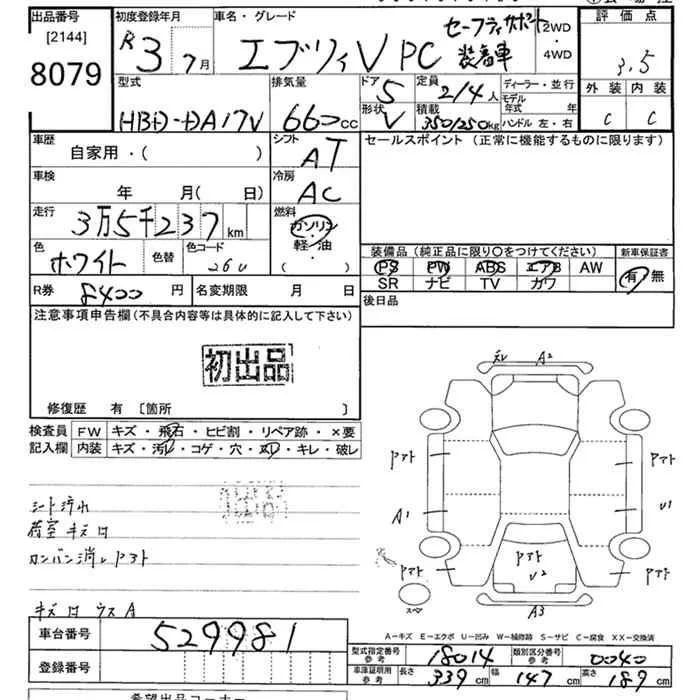 出品番号
[2144]
8079
初度登録年月
R 3 年 7月
車名・グレード
エブリィ V PC セーフティサポート装着車
2WD
4WD
評価点
3.5
外装 内装
C C
型式
HBD-DA17V
排気量
660cc
ドア
5
形状
V
定員
2/4人
積載
350/250kg
ディーラー・並行
モデル年式 年
ハンドル 左・右
車歴
自家用・( )
シフト
AT
車検
年 月( 日)
冷房
AC
走行
3万5千237km
燃料
ガソリン
軽・油
( )
色
ホワイト
色替
色コード
26U
R券
8400円
名変期限 月 日
セールスポイント (正常に機能するものに限ります)
装備品 (純正品に限り○をつけてください)
PS PW ABS エアB AW
SR ナビ TV カワ
新車保証書
有 無
後日品
注意事項申告欄(不具合内容等は具体的に記入して下さい)
初出品
修復歴 有 [箇所 ]
検査員記入欄
FW キズ・飛石・ヒビ割・リペア跡・×要
内装 キズ・汚レ・コゲ・穴・ヌリ・キレ・破レ
シート汚れ
荷室キズ凹
カンバン消しアト
キズ凹ウスA
A2
アアト アアト
A1 U1
アアト アアト アアト
U2
スペア
A3
A-キズ E-エクボ U-凹み W-補修跡 S-サビ C-腐食 XX-交換済
車台番号
529981
登録番号
型式指定番号 参考
18014
類別区分番号 参考
0040
車庫証明用 参考
長さ 339cm 幅 147cm 高さ 189cm
希望出品コーナー